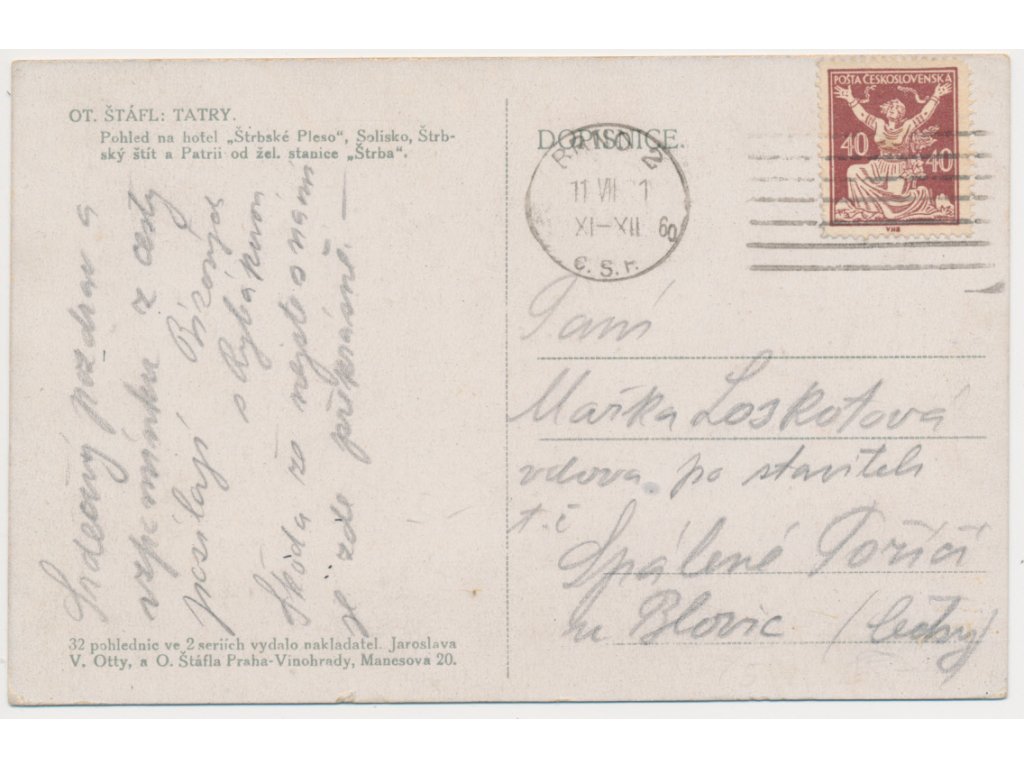 OT. ŠTÁFL: TATRY.
Pohled na hotel „Štrbské Pleso“, Solisko, Štrb-
ský štít a Patrii od žel. stanice „Štrba“.
Srdečný pozdrav a
vzpomínku z cesty
posílají
s Rybákovou
Škoda že nejste s námi
je zde překrásně. —
32 pohlednic ve 2 seriích vydalo nakladatel. Jaroslava
V. Otty, a O. Štáfla Praha-Vinohrady, Manesova 20.
DOPISNICE.
BRNO 2
11 VII 1
XI-XII 60
Č.S.R.
POŠTA ČESKOSLOVENSKÁ
40 40
VHB
Paní
Mařka Loskotová
vdova po staviteli
t.č
Spálené Poříčí
u Blovic (Čechy)